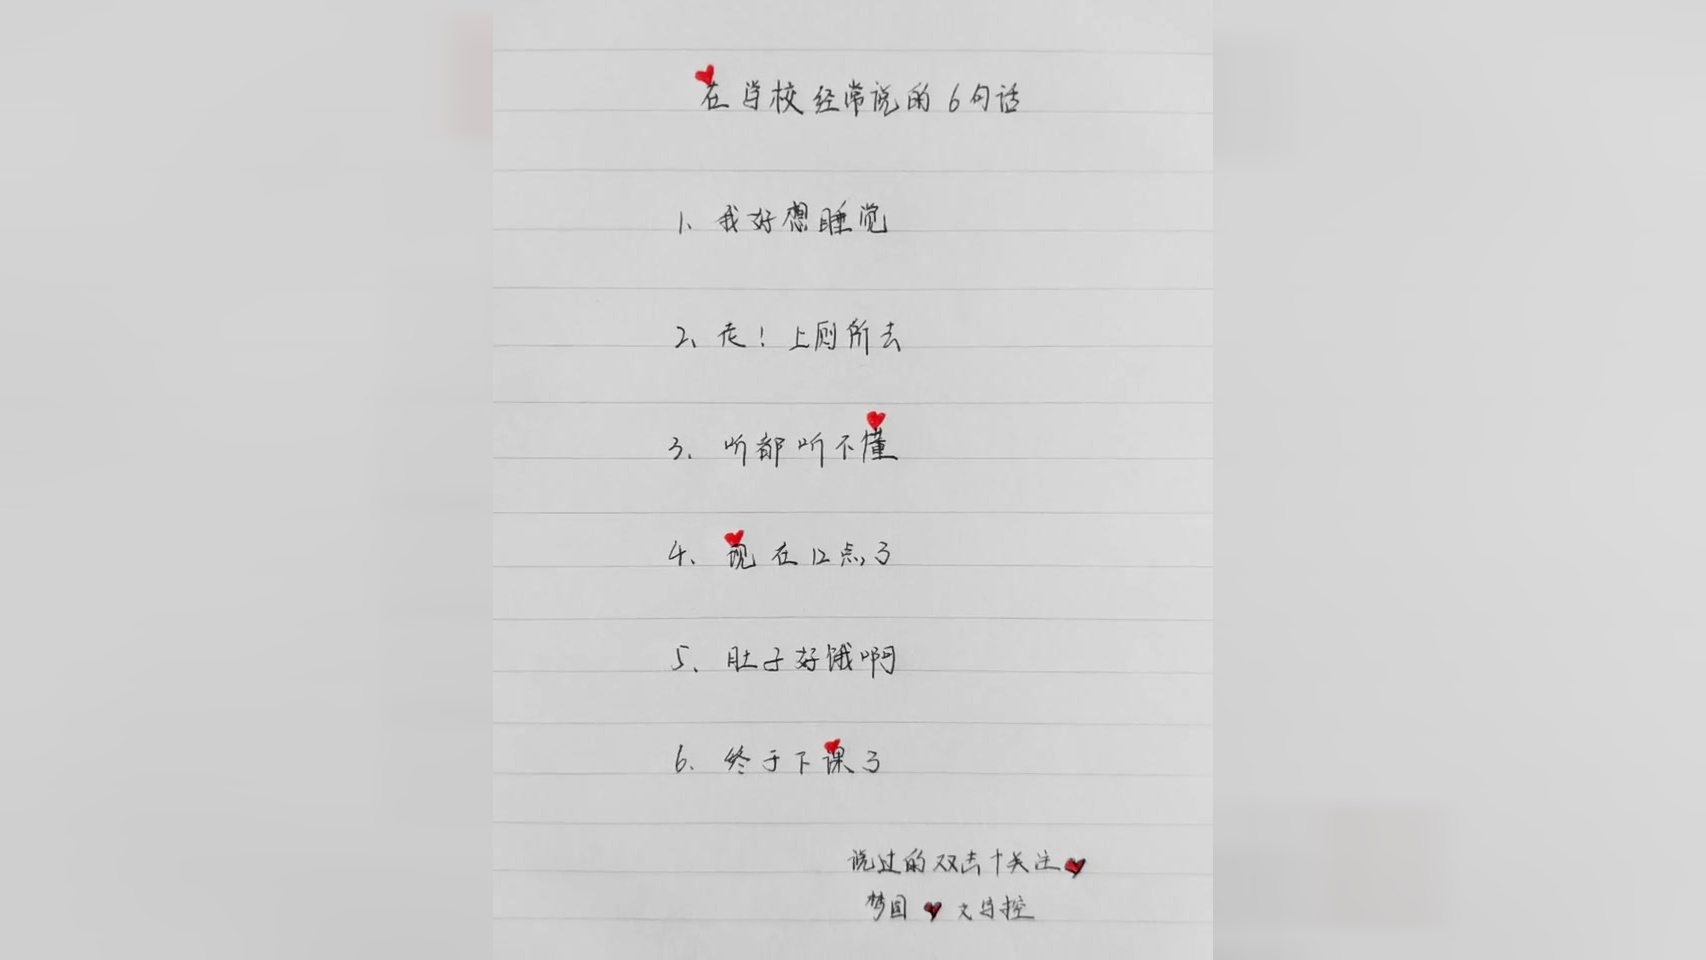 在学校经常说的6句话
1、我好想睡觉
2、走！上厕所去
3. 听都听不懂
4. 现在12点了
5. 肚子好饿啊
6. 终于下课了
说过的双击+关注
梦园 文学控